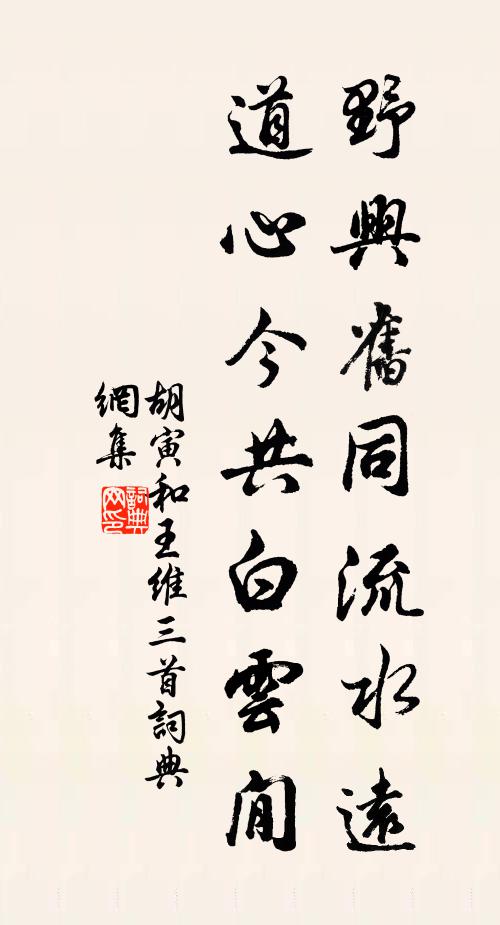 野興舊同流水遠
道心今共白雲間
胡寅和王維三首詞典
網集
詞典网印